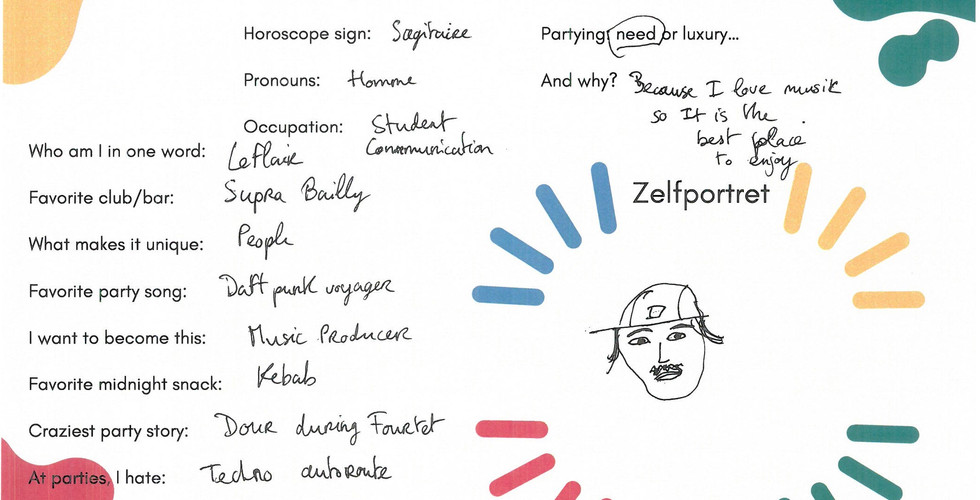 Horoscope sign: Sagitaire
Pronouns: Homme
Occupation: Student
Communication
Who am I in one word: Leflair
Favorite club/bar: Supra Bailly
What makes it unique: People
Favorite party song: Daft punk voyager
I want to become this: Music Producer
Favorite midnight snack: Kebab
Craziest party story: Dour during Fourtet
At parties, I hate: Techno autoroute
Partying: need or luxury...
And why? Because I love musik
so It is the
best place
to enjoy
Zelfportret
D